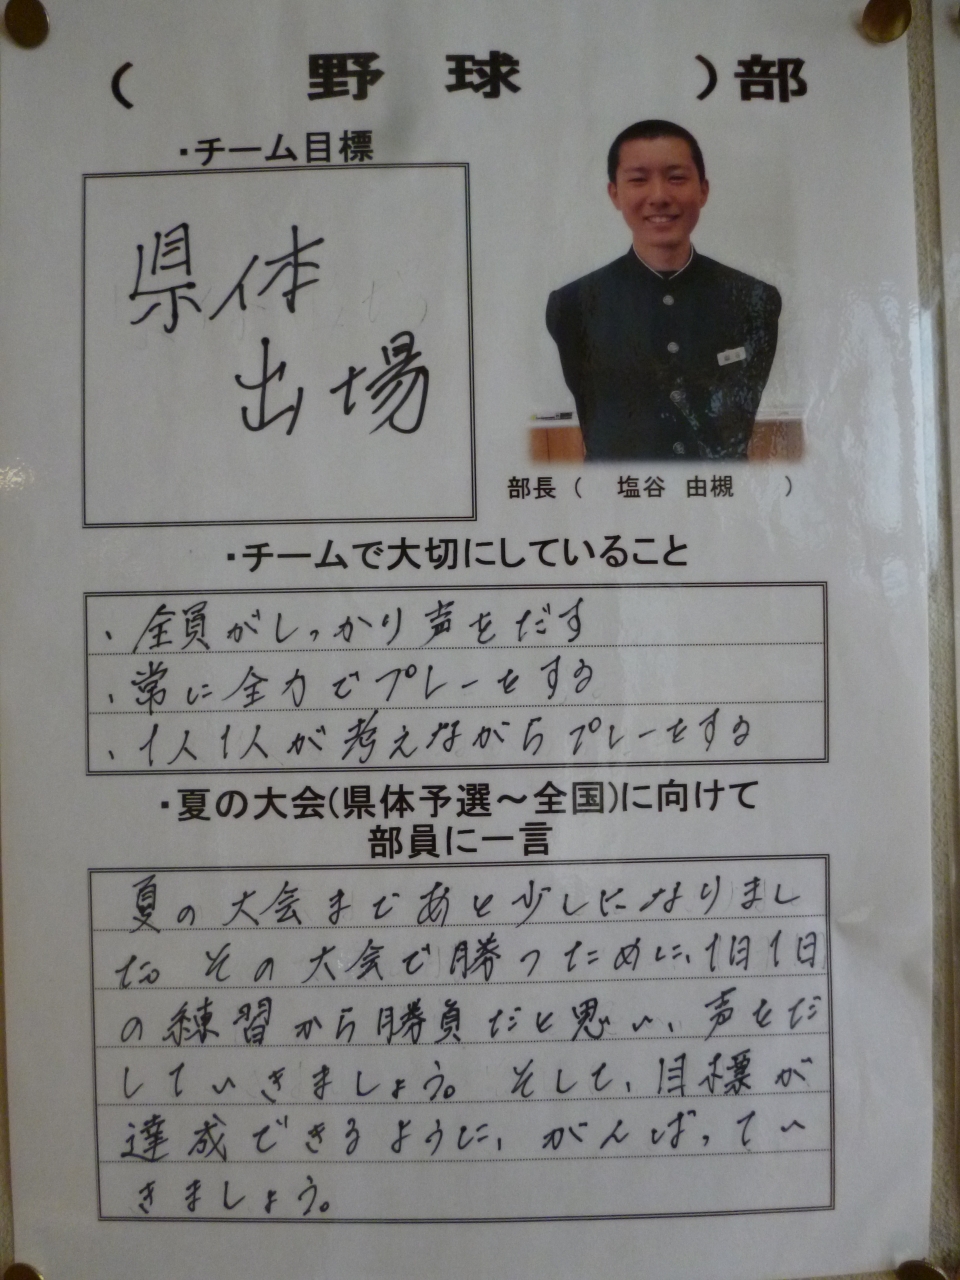 ( 野 球 ) 部
・チーム目標
県体
出場
部長 ( 塩谷 由槻 )
・チームで大切にしていること
・全員がしっかり声をだす
・常に全力でプレーをする
・1人1人が考えながらプレーをする
・夏の大会(県体予選～全国)に向けて
部員に一言
夏の大会まであと少しになりまし
た。その大会で勝つために、1日1日
の練習から勝負だと思い、声をだ
していきましょう。そして、目標が
達成できるように、がんばってい
きましょう。